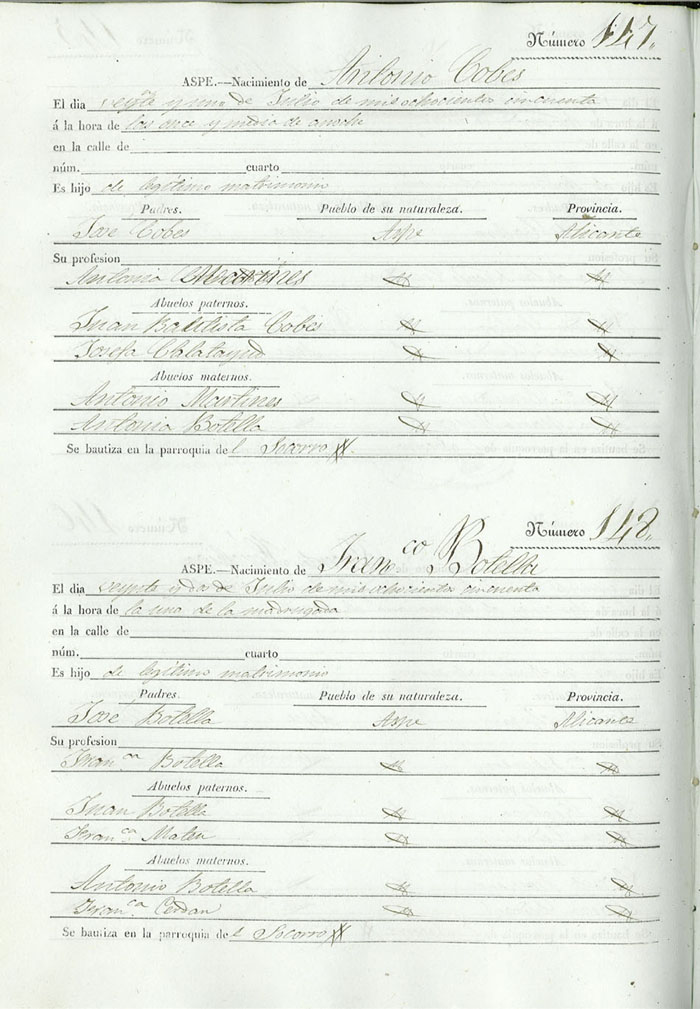 Número 147.
ASPE.—Nacimiento de Antonio Cobes
El dia veynte y uno de Julio de mil ochocientos cincuenta
á la hora de las once y media de anoche
en la calle de
núm. cuarto
Es hijo de legitimo matrimonio
Padres. Pueblo de su naturaleza. Provincia.
José Cobes Aspe Alicante
Su profesion
Antonia
Abuelos paternos.
Juan Bautista Cobes
Josefa Calatayud
Abuelos maternos.
Antonio Martines
Antonia Botella
Se bautiza en la parroquia del Socorro
Número 148.
ASPE.—Nacimiento de Fran.co Botella
El dia veynte y dos de Julio de mil ochocientos cincuenta
á la hora de la una de la madrugada
en la calle de
núm. cuarto
Es hijo de legitimo matrimonio
Padres. Pueblo de su naturaleza. Provincia.
José Botella Aspe Alicante
Su profesion
Fran.ca Botella
Abuelos paternos.
Juan Botella
Fran.ca Mateu
Abuelos maternos.
Antonio Botella
Fran.ca Cerdan
Se bautiza en la parroquia del Socorro